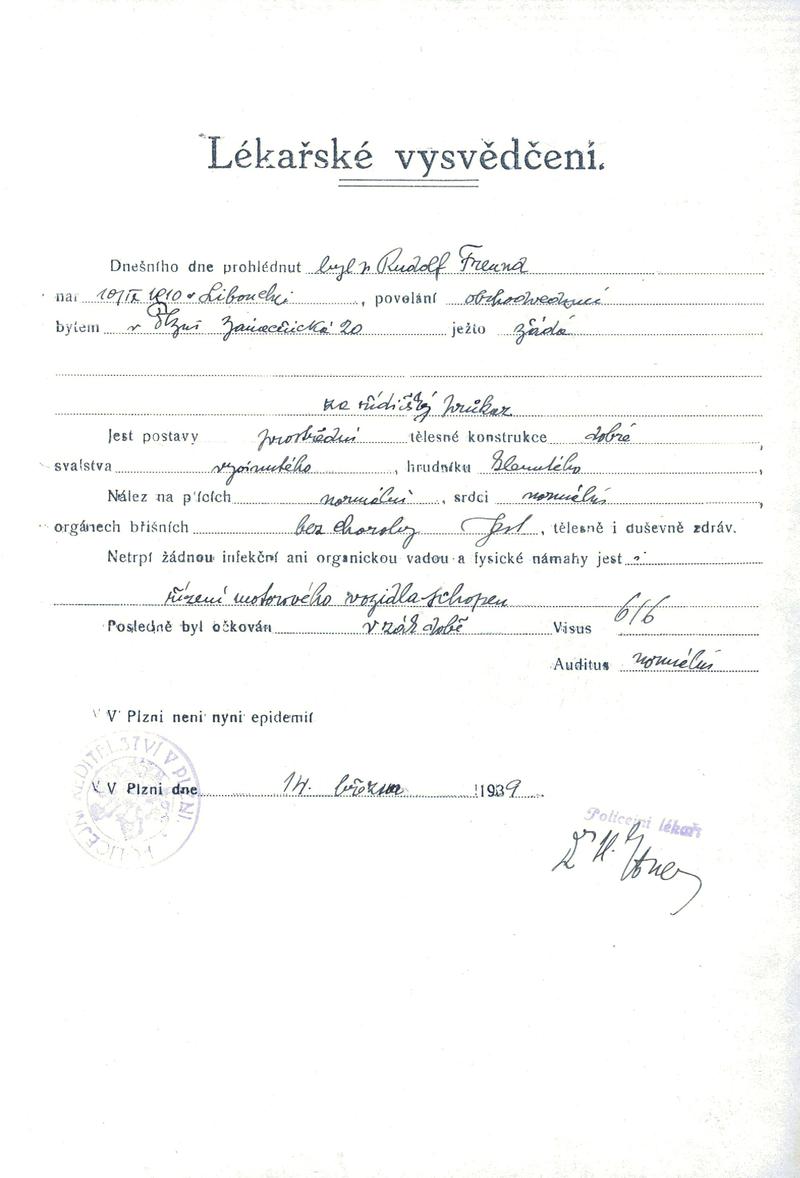 Lékařské vysvědčení.
Dnešního dne prohlédnut byl p Rudolf Freund
nar 10/IX 1910 v , povolání obchodvedoucí
bytem v Plzni 20 ježto žádá
za řidičský průkaz
Jest postavy prostřední tělesné konstrukce dobré,
svalstva vyvinutého, hrudníku klenutého,
Nález na plících normální, srdci normální,
orgánech břišních bez choroby Jest, tělesně i duševně zdráv.
Netrpí žádnou infekční ani organickou vadou a fysické námahy jest
řízení motorového vozidla schopen
Posledně byl očkován v zák době Visus 6/6
Auditus normální
V Plzni není nyní epidemií
POLICEJNÍ ŘEDITELSTVÍ V PLZNI
V Plzni dne 14. března 1939.
Policejní lékař:
Dr H.